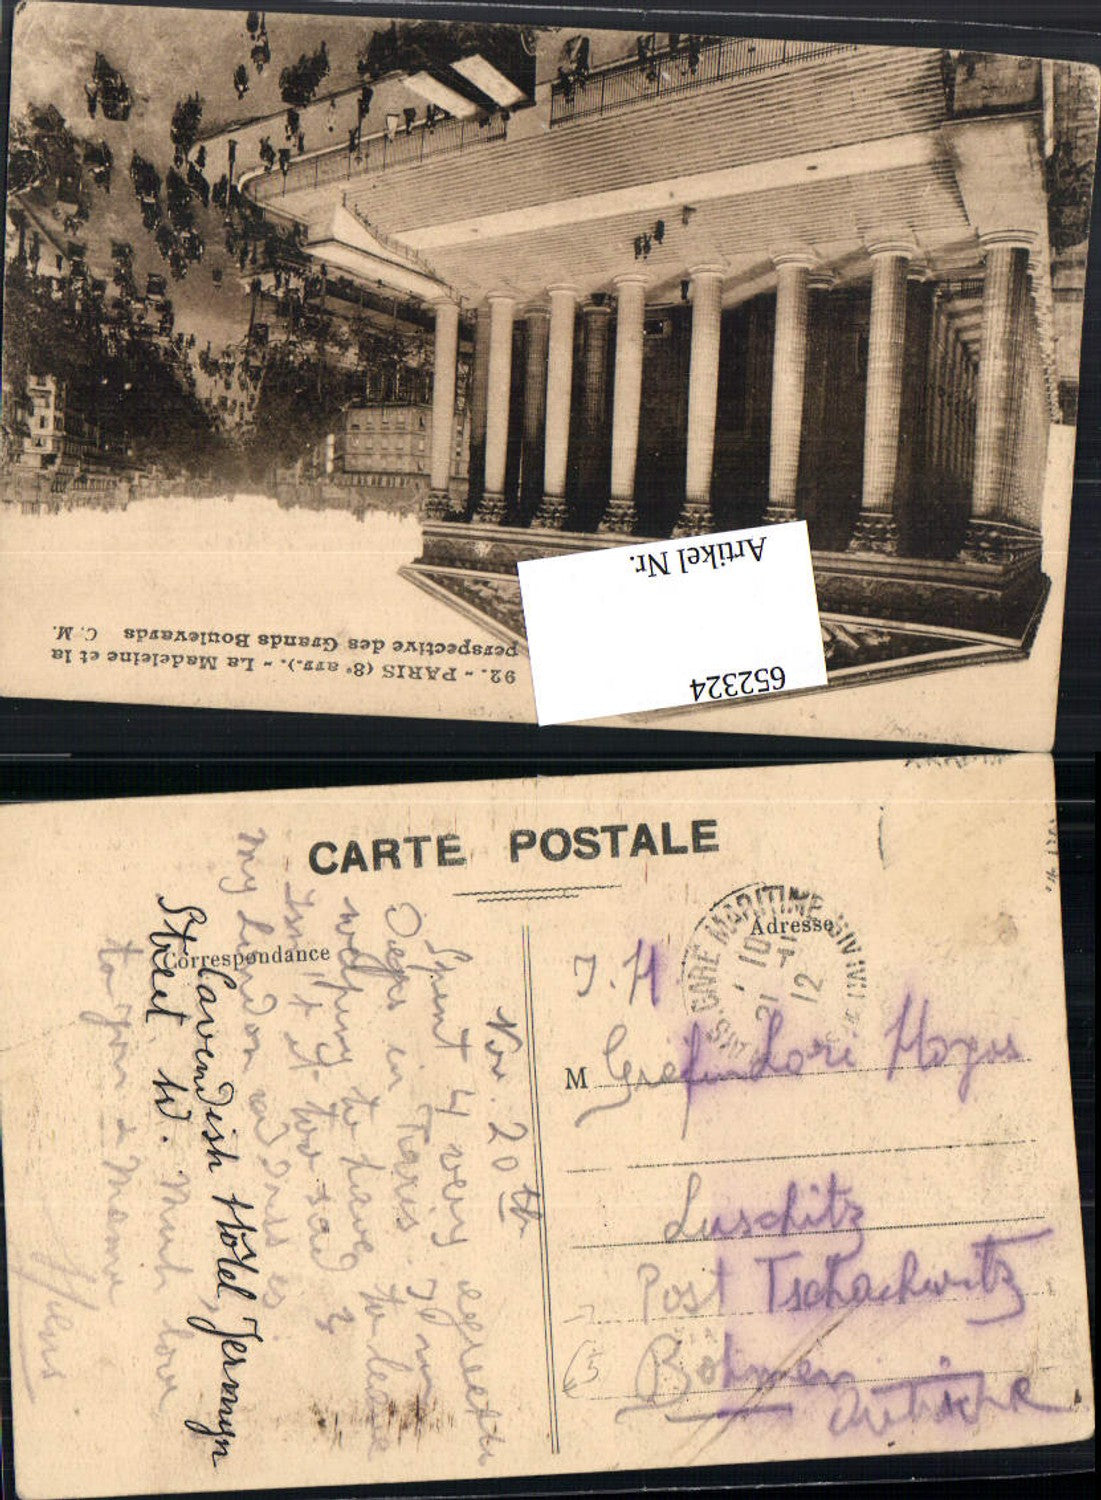 92. - PARIS (8e arr.). - La Madeleine et la
perspective des Grands Boulevards C. M.
Artikel Nr.
652324
CARTE POSTALE
Correspondance
Adresse
GARE MARITIME
21
12
Nov. 20th
Spent 4 very
Days in Paris. I'm
weeping to have to leave
Isn't it too sad &
my London address is
Cavendish Hôtel, Jermyn
Street W. Much love
to you & Mama
J. H
M Gräfin Lori Hoyos
Luschitz
Post Tschachwitz
Böhmen
65